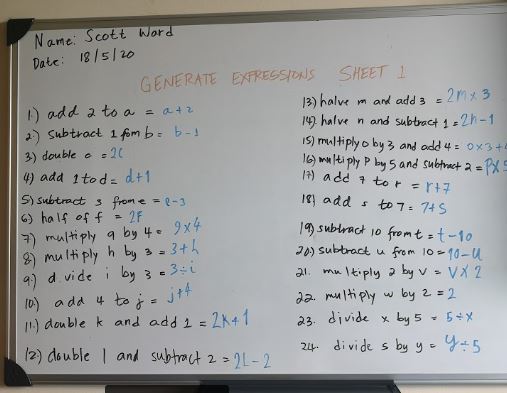 Name: Scott Ward
Date: 18/5/20
GENERATE EXPRESSIONS SHEET 1
1.) add 2 to a = a+2
2.) subtract 1 from b = b-1
3) double c = 2C
4) add 1 to d = d+1
5) subtract 3 from e = e-3
6) half of f = 2F
7) multiply g by 4 = 9x4
8) multiply h by 3 = 3+h
9.) divide i by 3 = 3÷i
10.) add 4 to j = j+4
11.) double k and add 1 = 2k+1
12.) double l and subtract 2 = 2L-2
13) halve m and add 3 = 2m x 3
14) halve n and subtract 1 = 2n-1
15) multiply o by 3 and add 4 = 0x3+
16) multiply P by 5 and subtract 2 = Px5
17) add 7 to r = r+7
18) add s to 7 = 7+S
19) subtract 10 from t = t-10
20) subtract u from 10 = 10-u
21. multiply 2 by v = V x 2
22. multiply w by 2 = 2
23. divide x by 5 = 5÷x
24. divide 5 by y = y÷5